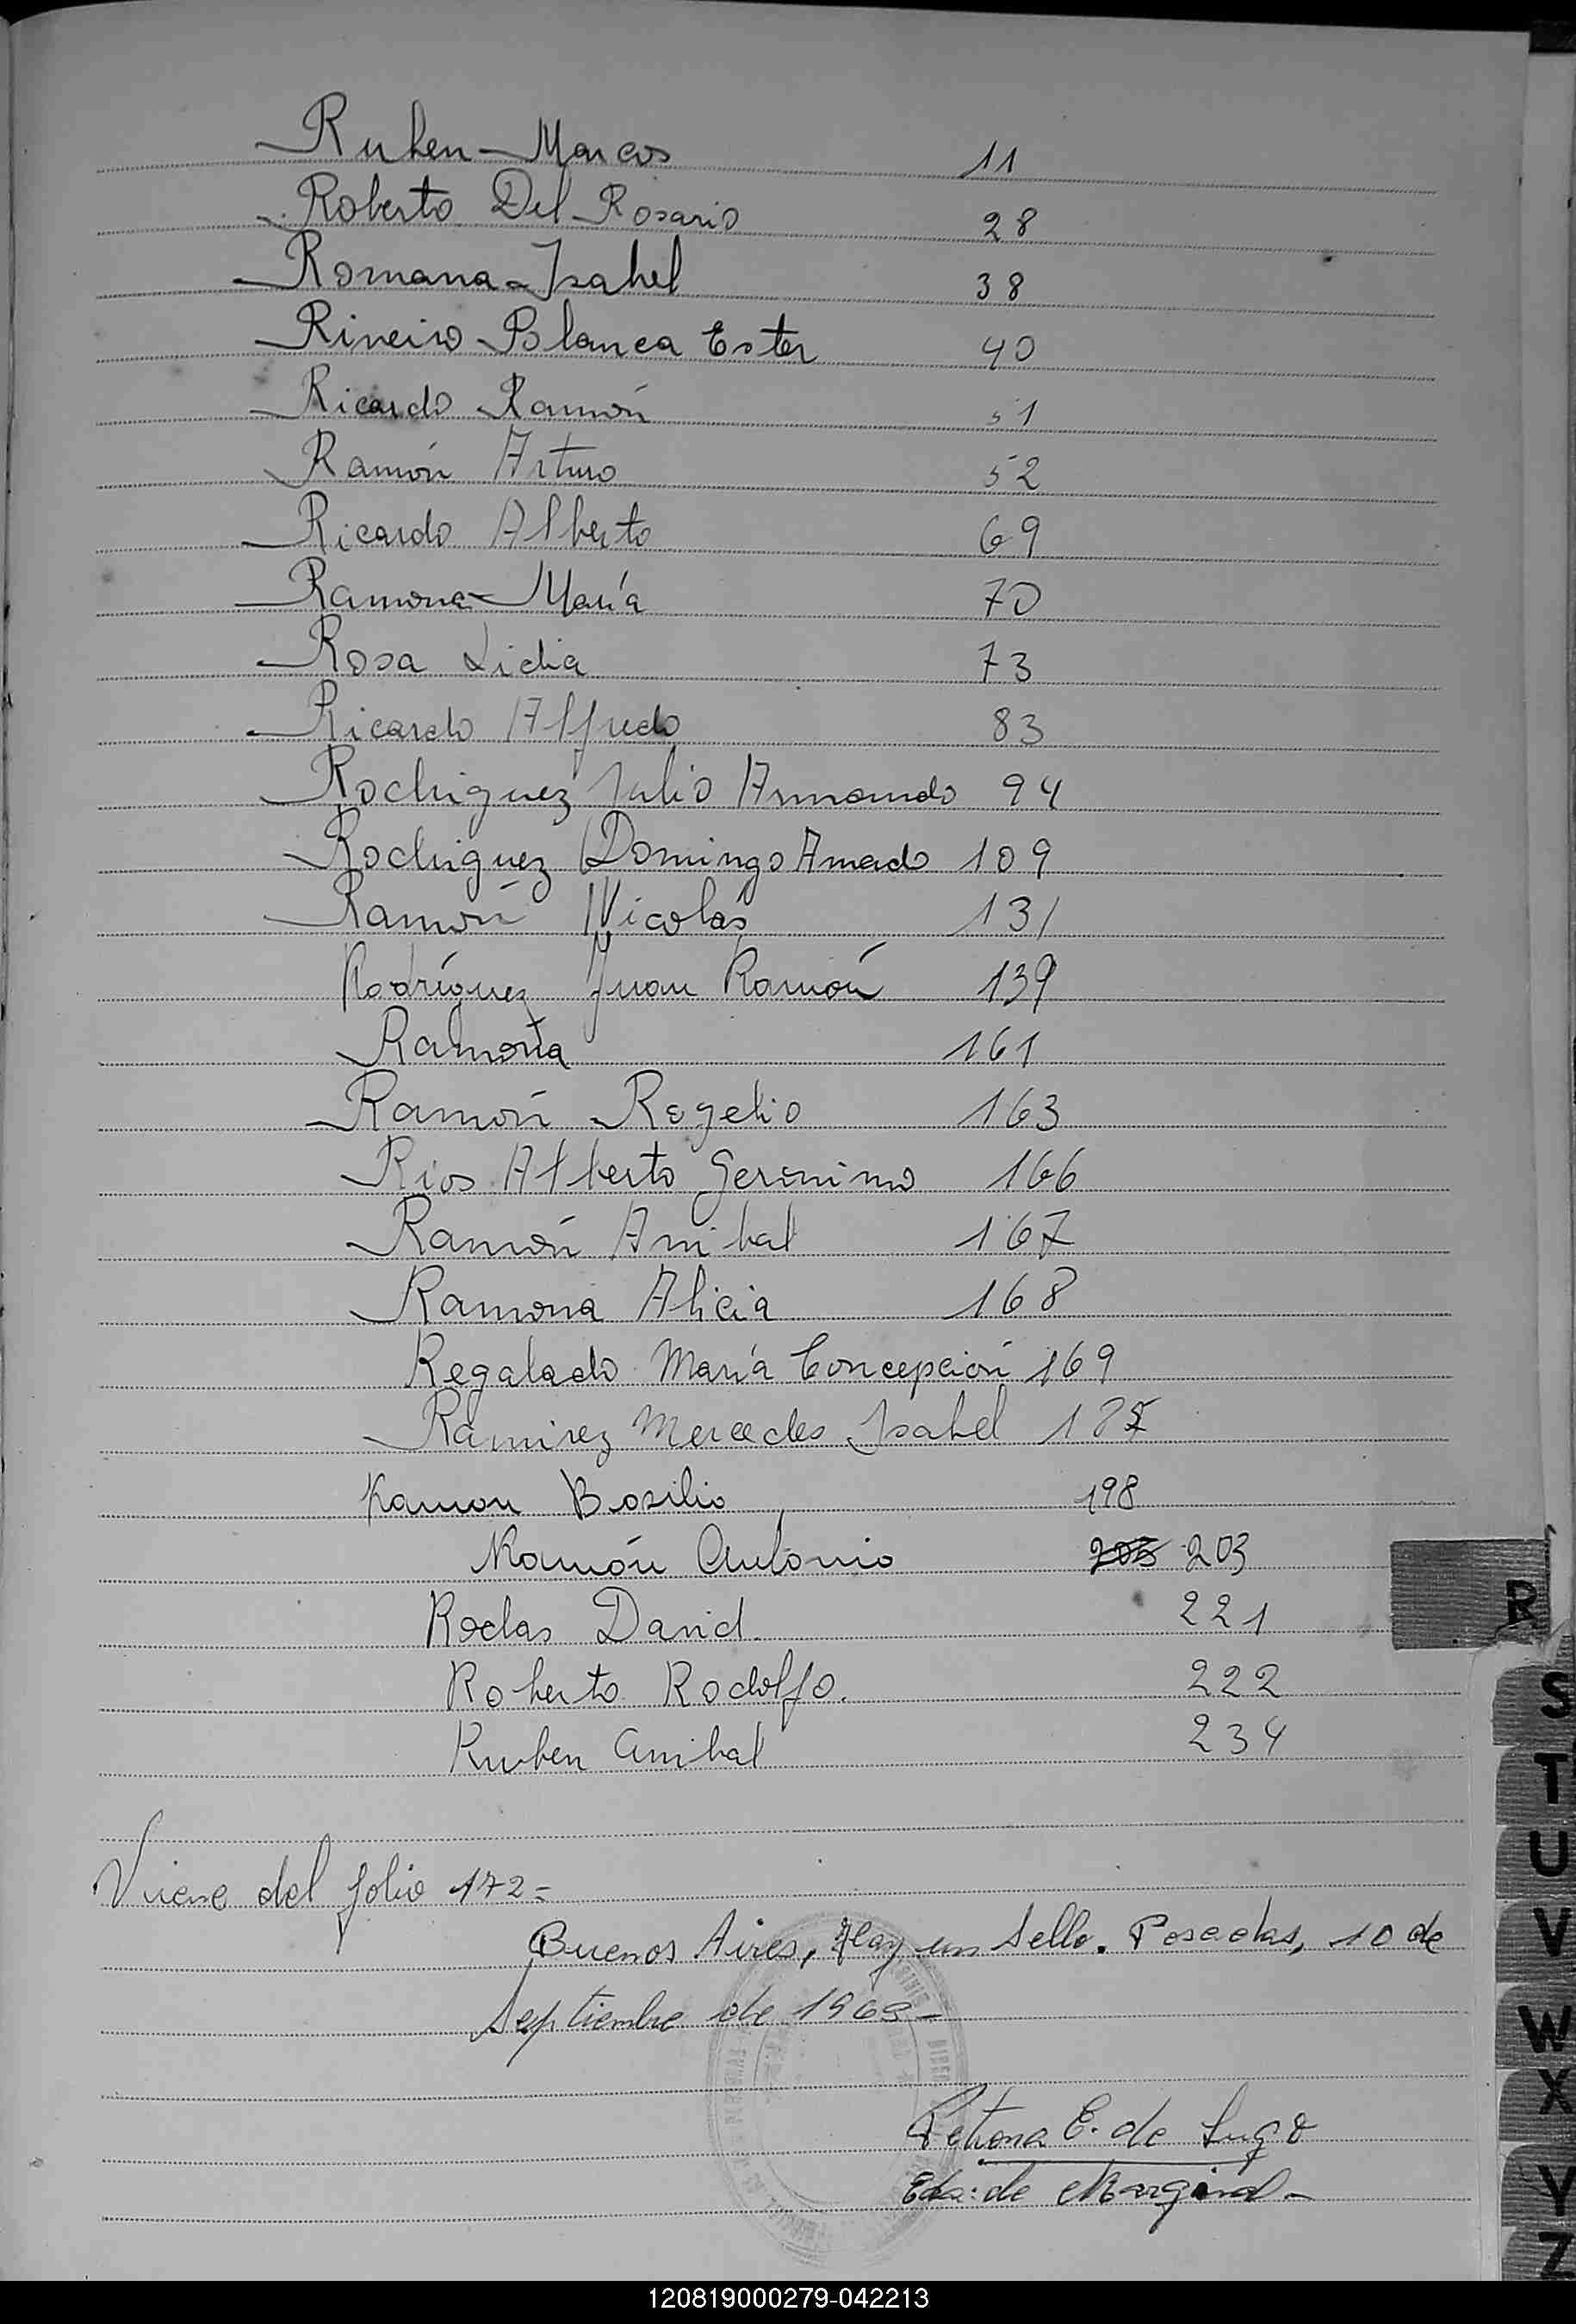 Ruben Marcos 11
Roberto Del Rosario 28
Romana Isabel 38
Riveiro Blanca Ester 40
Ricardo Ramón 51
Ramón Arturo 52
Ricardo Alberto 69
Ramona María 70
Rosa Lidia 73
Ricardo Alfredo 83
Rodriguez Julio Armando 94
Rodriguez Domingo Amado 109
Ramón Nicolás 131
Rodríguez Juan Ramón 139
Ramona 161
Ramón Rogelio 163
Rios Alberto Geronimo 166
Ramón Anibal 167
Ramona Alicia 168
Regalado María Concepción 169
Ramirez Mercedes Isabel
Ramon Basilio 198
Ramón Antonio 203
R
Rodas David. 221
Roberto Rodolfo. 222
Ruben Anibal 234
S
T
U
V
W
X
Y
Z
Viene del folio 172=
Buenos Aires, Hay un sello. Posadas, 10 de
Septiembre de 1969-
Petrona E. de Lugo
Eda: de Marginal-
120819000279-042213